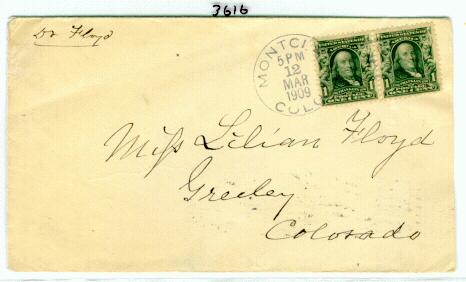 3616
Dr Floyd
MONTCI
5 PM
12
MAR
1909
COLO
Miss Lilian Floyd
Greeley
Colorado